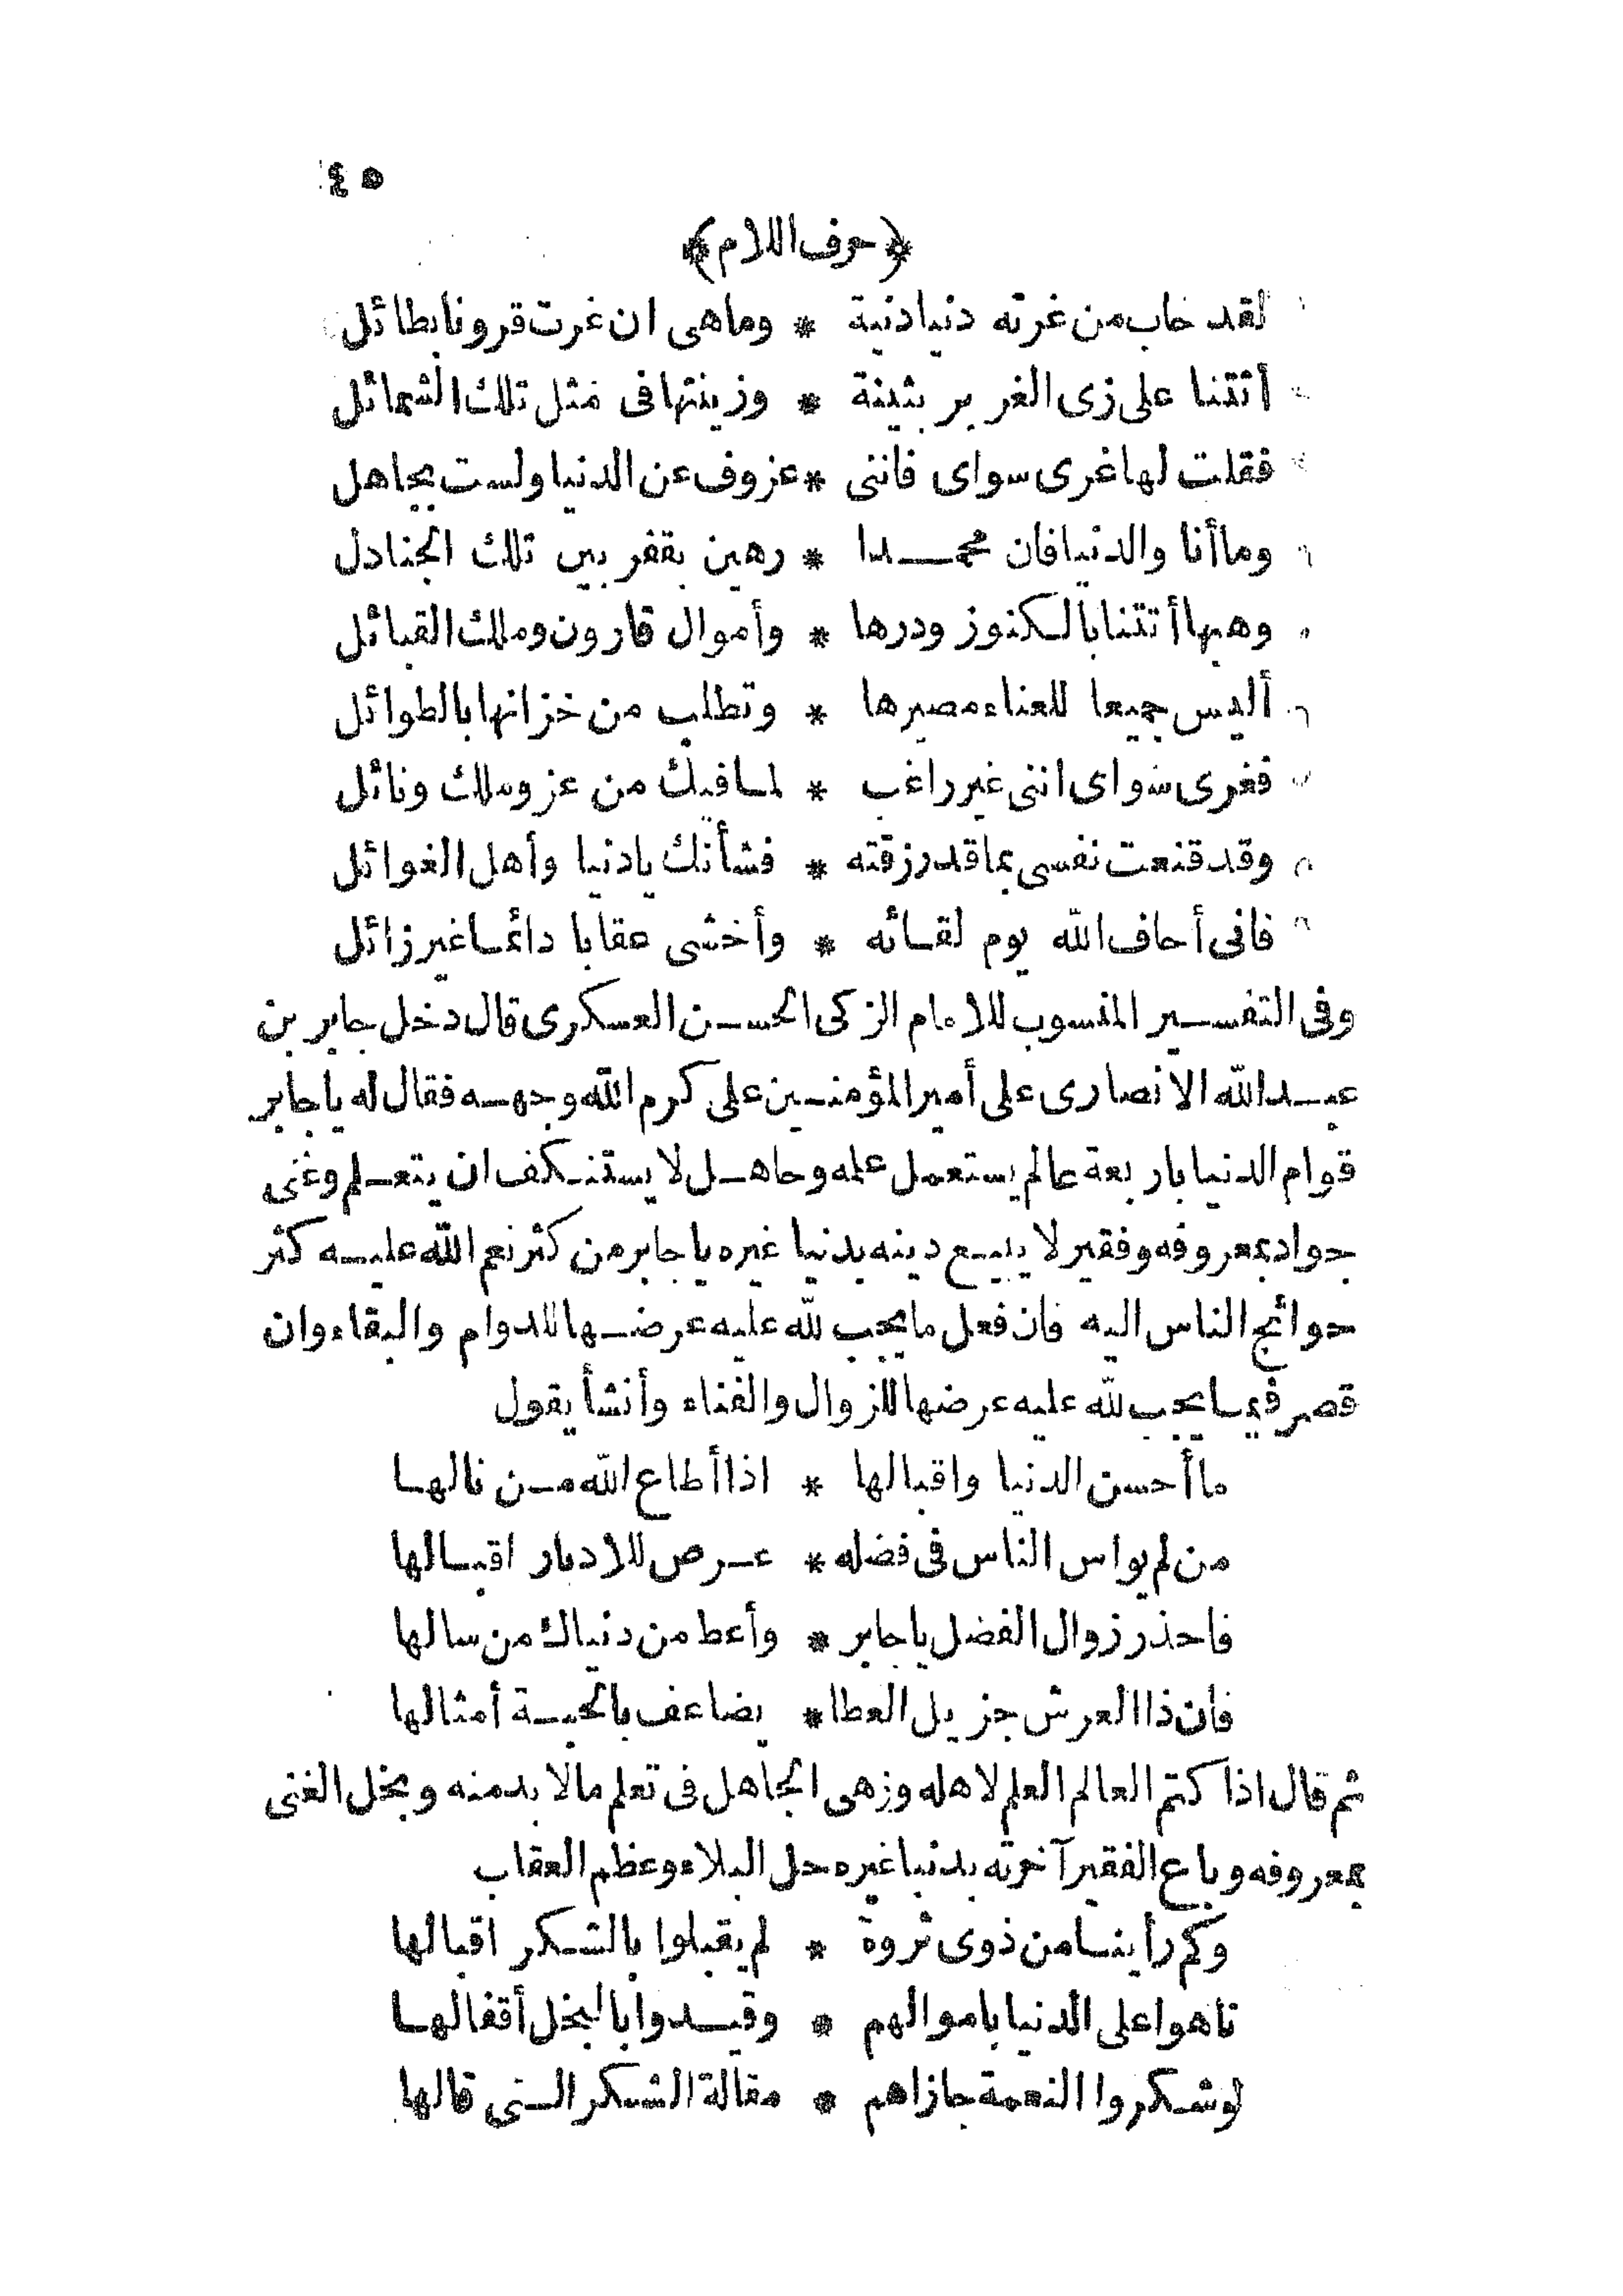 ٤٥
﴿حرف اللام﴾
لقد خاب من غرته دنيا دنية * وما هى ان غرت قرونا بطائل
أتتنا على زى الغرير بثينة * وزينتها فى مثل تلك الشمائل
فقلت لها غرى سواى فاننى * عزوف عن الدنيا ولست بجاهل
وما أنا والدنيا فان محمدا * رهين بقفر بين تلك الجنادل
وهبها أتتنا بالكنوز ودرها * وأموال قارون وملك القبائل
أليس جميعا للعناء مصيرها * وتطلب من خزانها بالطوائل
فغرى سواى اننى غير راغب * لما فيك من عز وملك ونائل
وقد قنعت نفسى بما قد رزقته * فشأنك يا دنيا وأهل الغوائل
فانى أخاف الله يوم لقائه * وأخشى عقابا دائما غير زائل
وفى التفسير المنسوب للامام الزكى الحسن العسكرى قال دخل جابر بن
عبد الله الانصارى على أمير المؤمنين على كرم الله وجهه فقال له يا جابر
قوام الدنيا باربعة عالم يستعمل علمه وجاهل لا يستنكف ان يتعلم وغنى
جواد بمعروفه وفقير لا يبيع دينه بدنيا غيره يا جابر من كثر نعم الله عليه كثر
حوائج الناس اليه فان فعل ما يجب لله عليه عرضها للدوام والبقاء وان
قصر فيما يجب لله عليه عرضها للزوال والفناء وأنشأ يقول
ما أحسن الدنيا واقبالها * اذا أطاع الله من نالها
من لم يواس الناس فى فضله * عرض للادبار اقبالها
فاحذر زوال الفضل يا جابر * وأعط من دنياك من سالها
فان ذا العرش جزيل العطا * يضاعف بالحبة أمثالها
ثم قال اذا كتم العالم العلم لاهله وزهى الجاهل فى تعلم ما لا بد منه وبخل الغنى
بمعروفه وباع الفقير آخرته بدنيا غيره حل البلاء وعظم العقاب
وكم رأينا من ذوى ثروة * لم يقبلوا بالشكر اقبالها
تاهوا على الدنيا باموالهم * وقيدوا بالبخل أقفالها
لو شكروا النعمة جازاهم * مقالة الشكر التى قالها